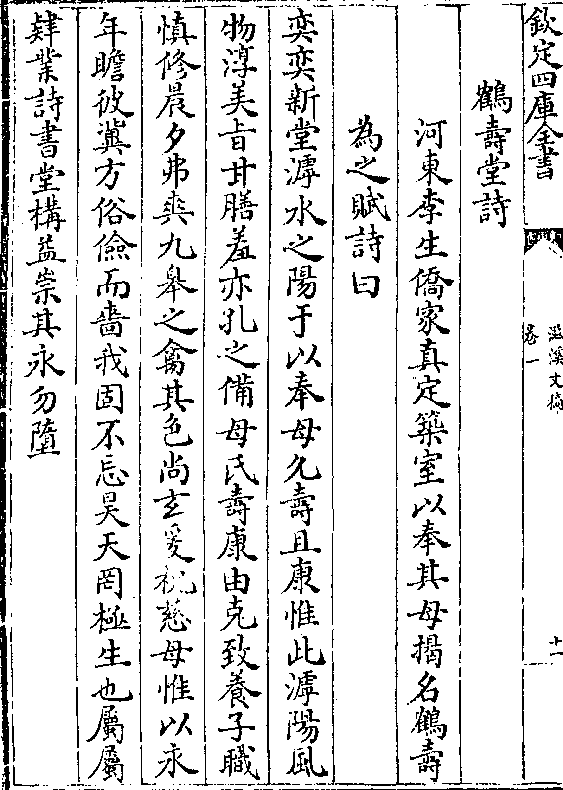 欽定四庫全書
滋溪文稿
卷一
十一
鶴壽堂詩
河東李生僑家真定築室以奉其母揭名鶴壽
為之賦詩曰
奕奕新堂滹水之陽于以奉母久壽且康惟此滹陽風
物淳美旨甘膳羞亦孔之備母氏壽康由克致養子職
慎修晨夕弗爽九皋之禽其色尚玄爰祝慈母惟以永
年瞻彼冀方俗儉而嗇我固不忘昊天罔極生也屬屬
肄業詩書堂構益崇其永勿墮